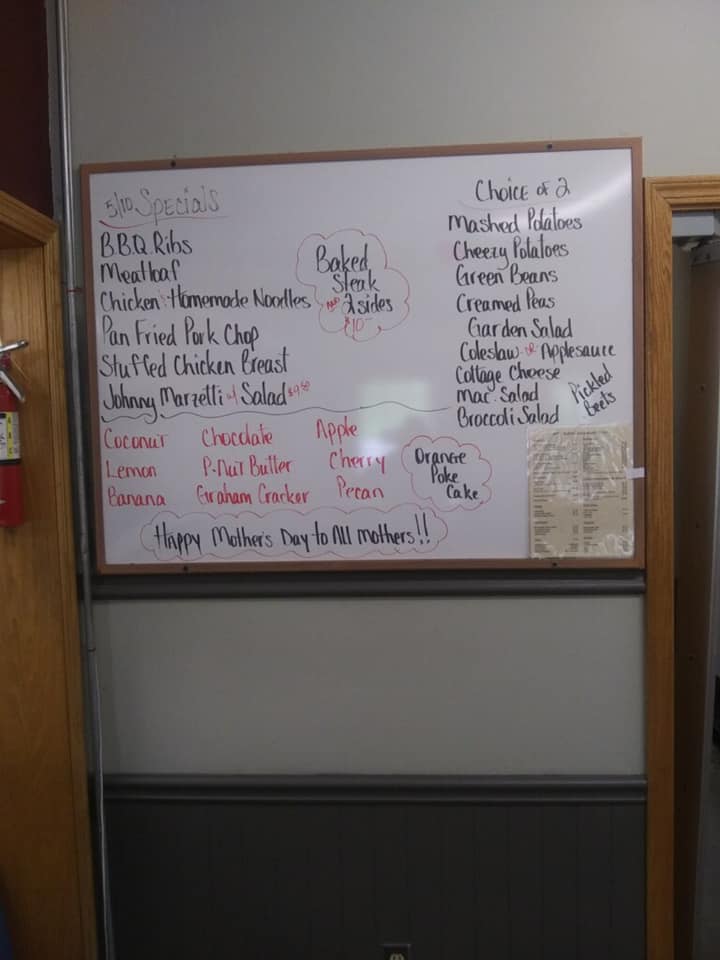 5/10 Specials
B.B.Q. Ribs
Meatloaf
Chicken & Homemade Noodles
Pan Fried Pork Chop
Stuffed Chicken Breast
Johnny Marzetti w/ Salad
Baked
Steak
AND 2 sides
$10-
Choice of 2
Mashed Potatoes
Cheezy Potatoes
Green Beans
Creamed Peas
Garden Salad
Coleslaw OR Applesauce
Cottage Cheese
Mac. Salad
Broccoli Salad
Pickled
Beets
Coconut Chocolate Apple
Lemon P-Nut Butter Cherry
Banana Graham Cracker Pecan
Orange
Poke
Cake
Happy Mother's Day to All mothers!!